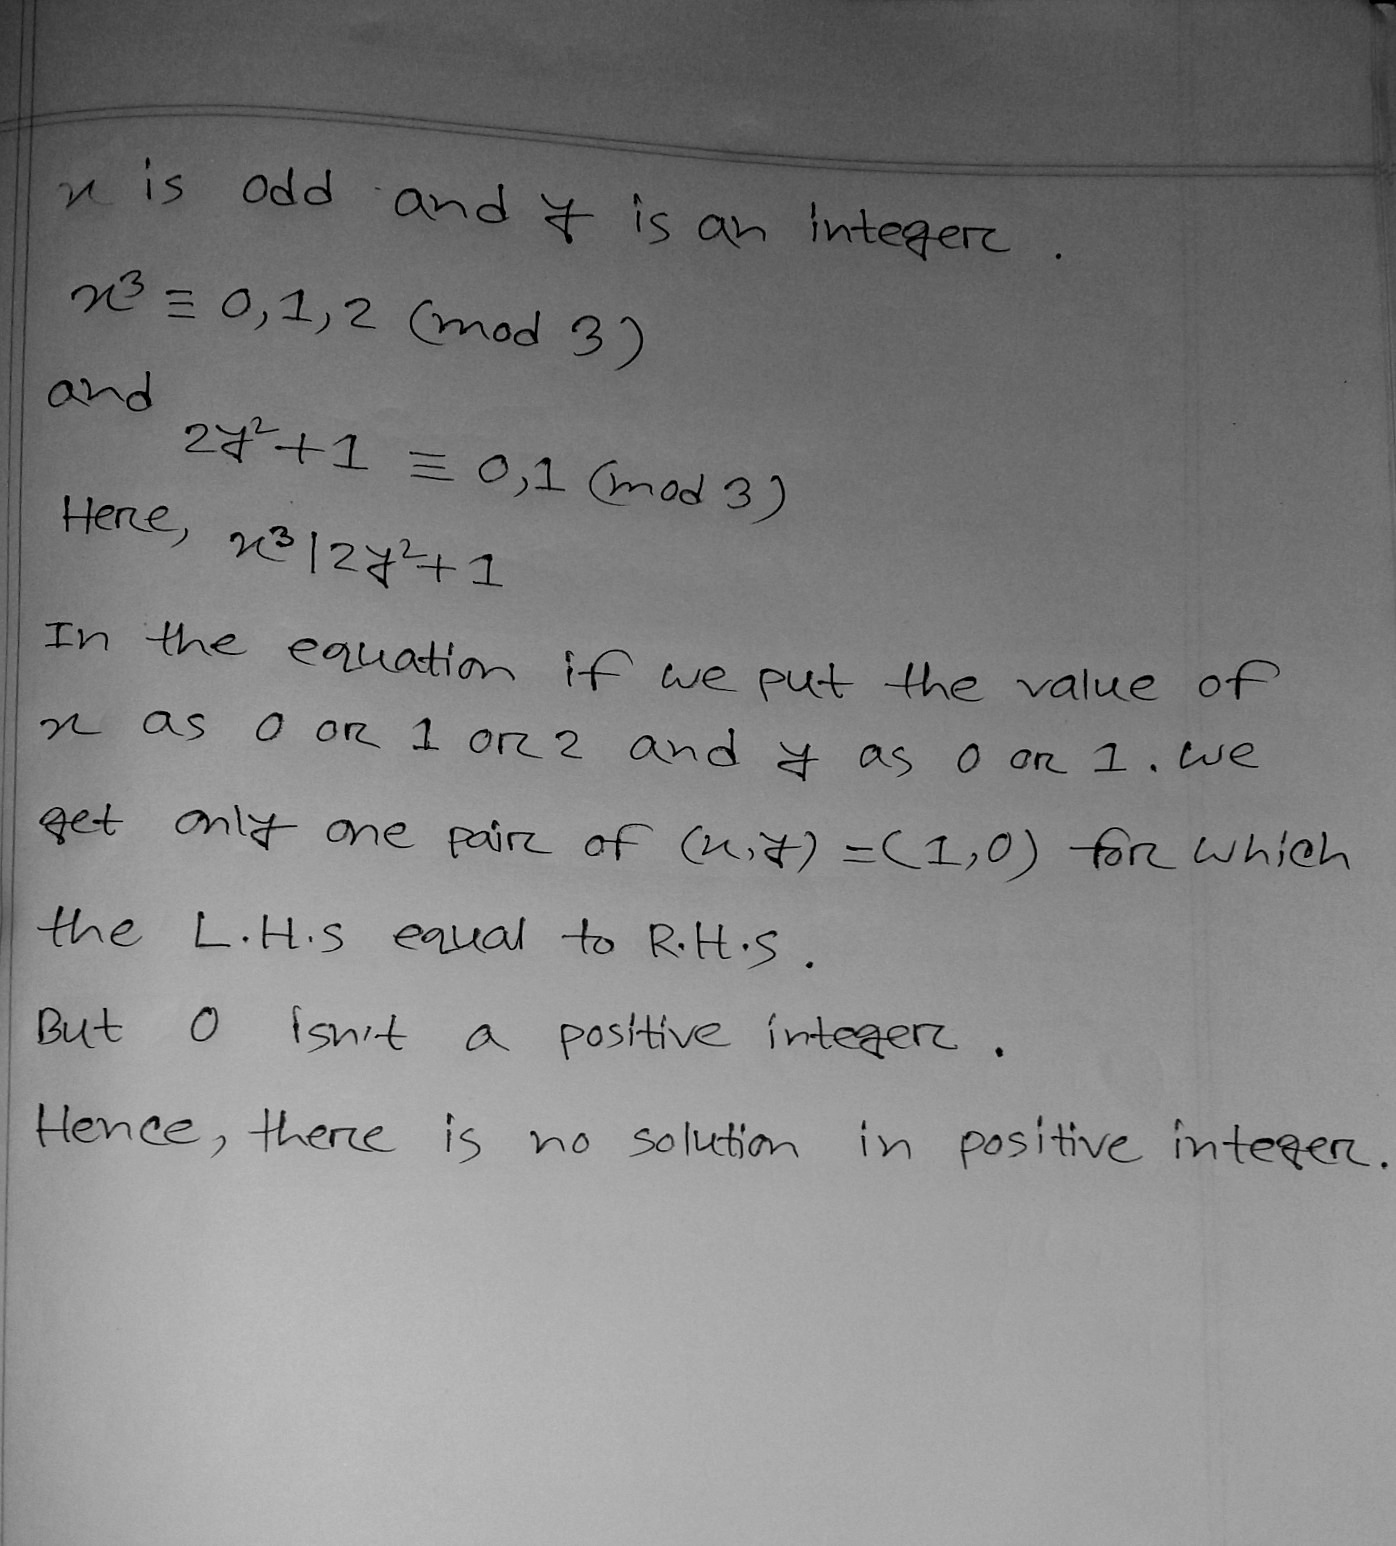 x is odd and y is an integer.
x³ ≡ 0,1,2 (mod 3)
and
2y²+1 ≡ 0,1 (mod 3)
Here, x³|2y²+1
In the equation if we put the value of
x as 0 or 1 or 2 and y as 0 or 1. we
get only one pair of (x,y) =(1,0) for which
the L.H.S equal to R.H.S.
But 0 isn't a positive integer.
Hence, there is no solution in positive integer.